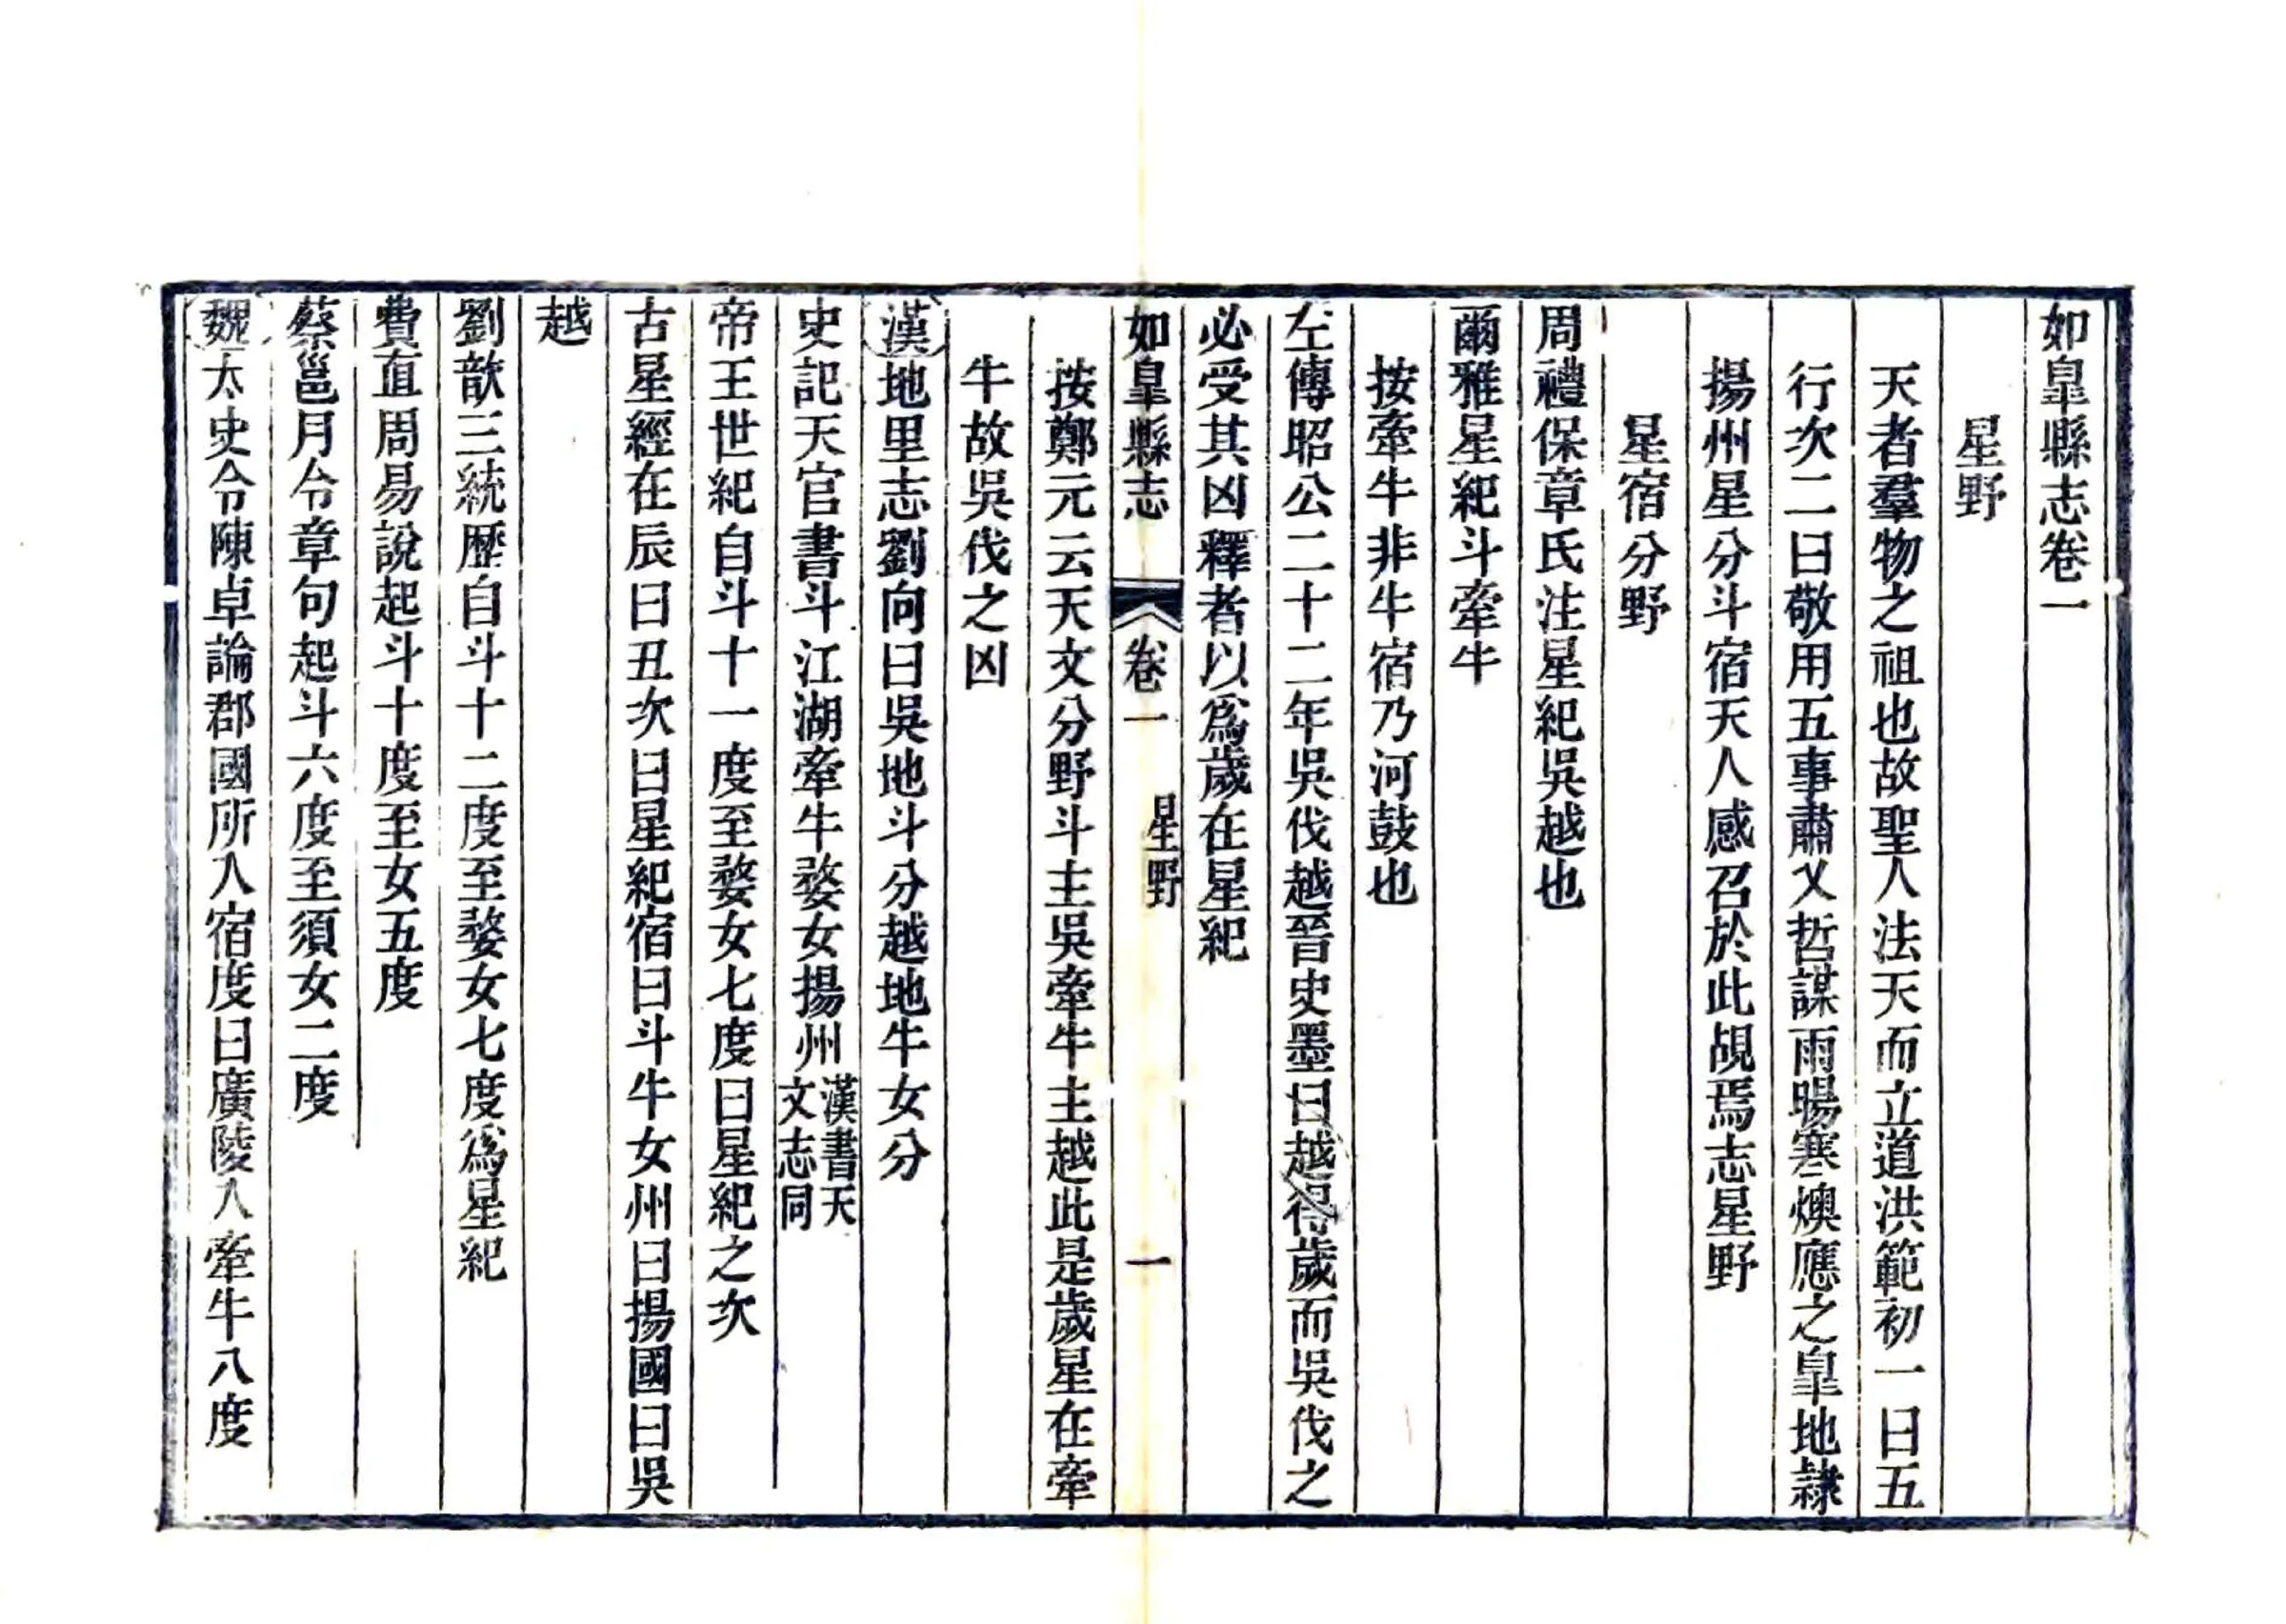 如皐縣志卷一
星野
天者羣物之祖也故聖人法天而立道洪範初一曰五
行次二曰敬用五事肅乂哲謀雨暘寒燠應之皐地隷
揚州星分斗宿天人感召於此覘焉志星野
星宿分野
周禮保章氏注星紀吳越也
爾雅星紀斗牽牛
按牽牛非牛宿乃河鼓也
左傳昭公二十二年吳伐越晉史墨曰越得歲而吳伐之
必受其凶釋者以爲歲在星紀
如皐縣志 卷一 星野 一
按鄭元云天文分野斗主吳牽牛主越此是歲星在牽
牛故吳伐之凶
漢地里志劉向曰吳地斗分越地牛女分
史記天官書斗江湖牽牛婺女揚州漢書天文志同
帝王世紀自斗十一度至婺女七度曰星紀之次
古星經在辰曰丑次曰星紀宿曰斗牛女州曰揚國曰吳
越
劉歆三統歷自斗十二度至婺女七度爲星紀
費直周易說起斗十度至女五度
蔡邕月令章句起斗六度至須女二度
魏太史令陳卓論郡國所入宿度曰廣陵入牽牛八度